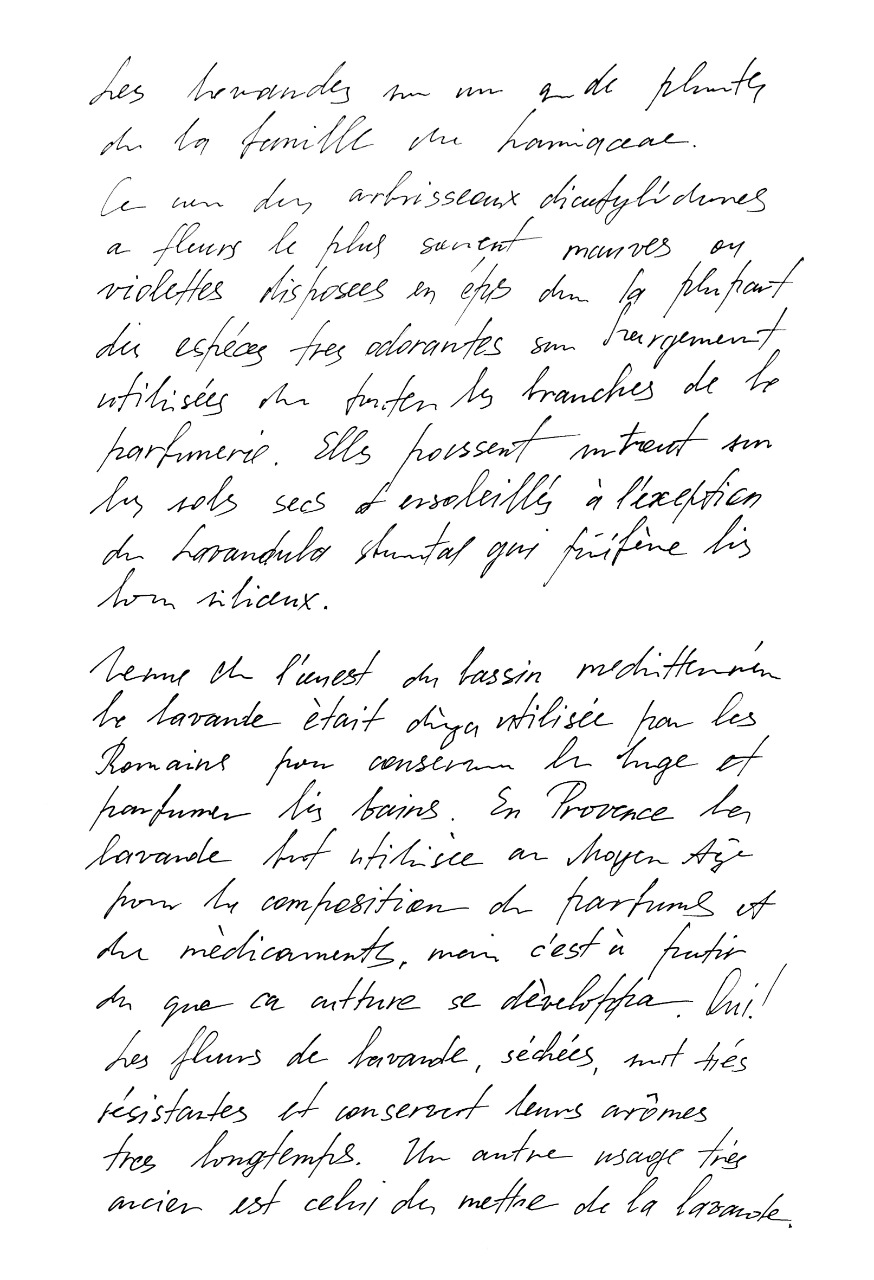 Les lavandes un de plantes
de la famille du Lamiaceae.
Ce arbrisseaux
a fleurs le plus souvent mauves ou
violettes disposees en épis la plupart
des espéces tres odorantes largement
utilisées les branches de la
parfumerie. Elles poussent surtout sur
les sols secs et ensoleillés à l'éxeption
du Lavandula qui préfère les
silicieux.
l'ouest du bassin
la lavande ètait utilisée par les
Romains pour conserver le linge et
parfumer les bains. En Provence la
lavande fut utilisèe au Moyen Age
pour la composition de parfums et
de mèdicaments, mais c'est à partir
du que ca culture se dèveloppa. Oui!
Les fleurs de lavande, séchées, sont trés
résistantes et conservent leurs arômes
tres longtemps. Un autre usage trés
ancien est celui de mettre de la lavande.